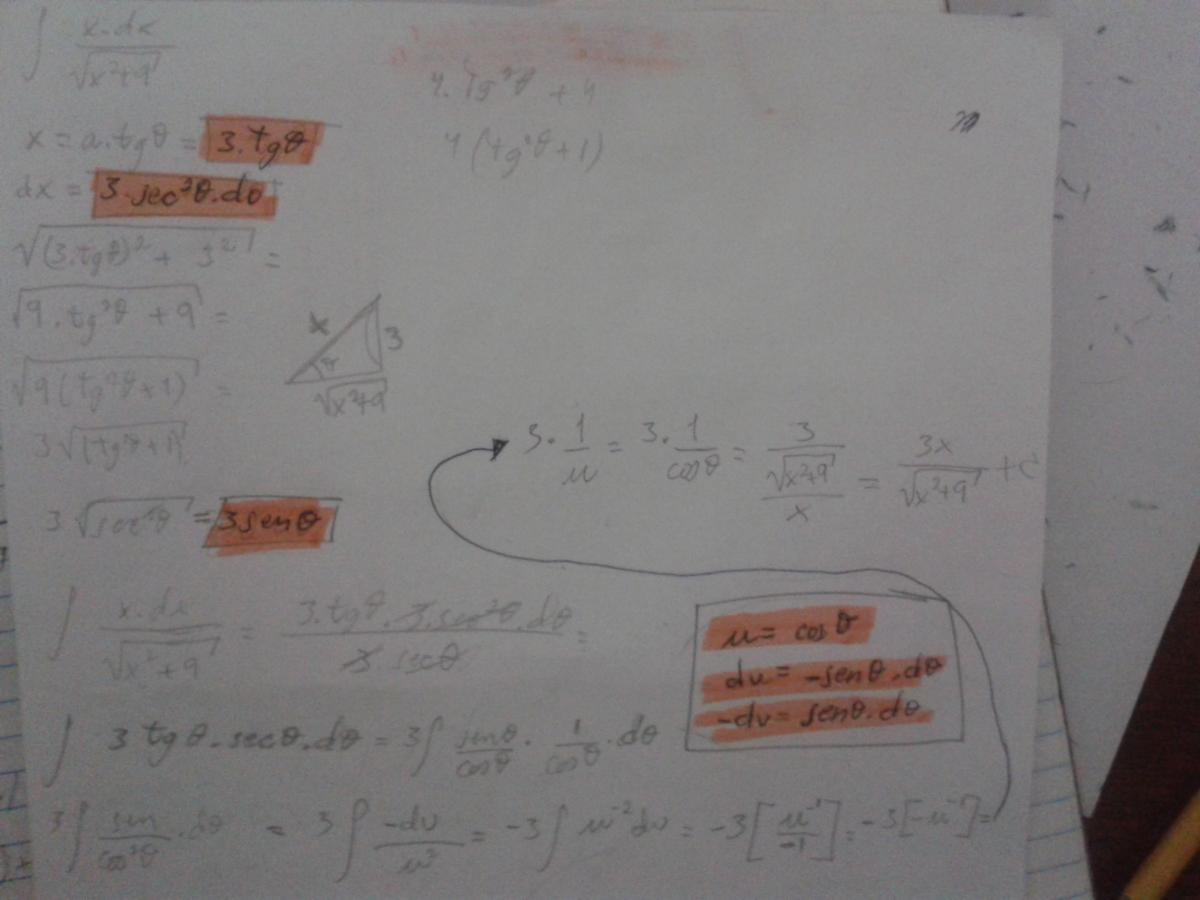 ∫ x·dx / √(x²+9)
x = a.tgθ = 3.tgθ
dx = 3·sec²θ.dθ
√((3.tgθ)² + 3²) =
√(9.tg²θ + 9) =
√(9(tg²θ+1)) =
3√(tg²θ+1)
3√(sec²θ) = 3senθ
4.tg²θ + 4
4(tg²θ+1)
x
θ
3
√(x²+9)
3·1/u = 3.1/cosθ = 3/(√(x²+9)/x) = 3x/√(x²+9) + C
∫ x.dx/√(x²+9) = 3.tgθ.3.sec²θ.dθ / 3.secθ =
u = cosθ
du = -senθ.dθ
-du = senθ.dθ
∫ 3 tgθ.secθ.dθ = 3∫ senθ/cosθ · 1/cosθ .dθ
3∫ sen/cos²θ .dθ = 3∫ -du/u² = -3∫ u⁻²du = -3[u⁻¹/-1] = -3[-u⁻¹] =